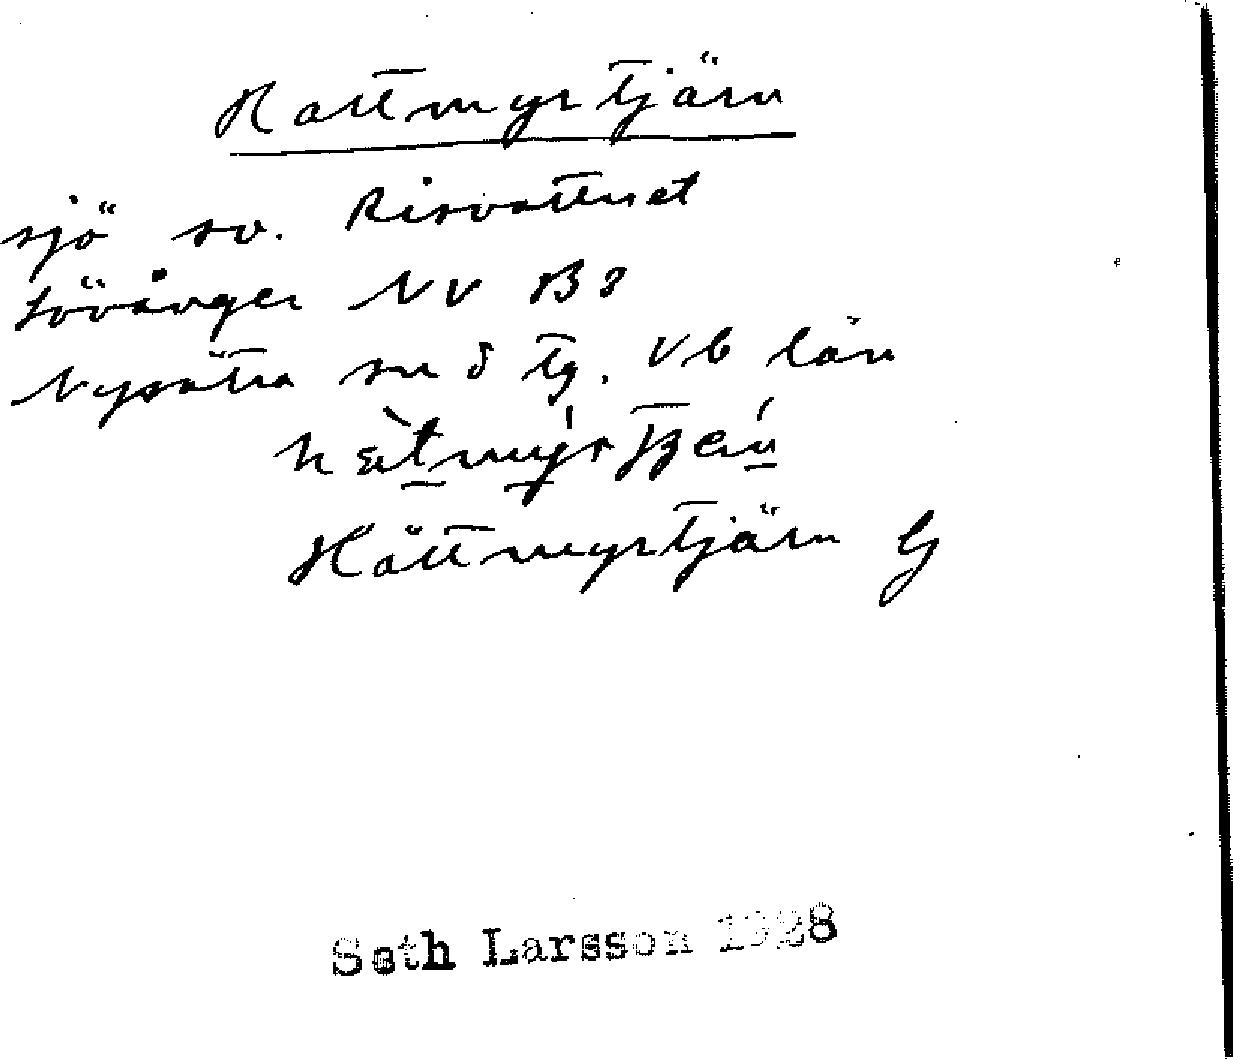 Hattmyrtjärn
sjö sv. Risvattnet
Lövånger NV B3
Nysätra sn d tg. Vb län
Hättmyrtjärn G
Seth Larsson 1928